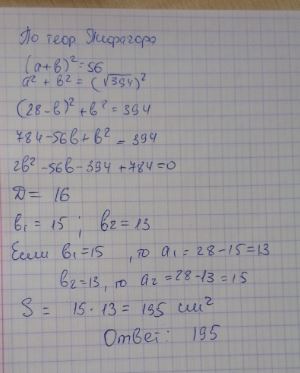 По теор. Пифагора
(a+b)²=56
a²+b²=(√394)²
(28-b)²+b²=394
784-56b+b²=394
2b²-56b-394+784=0
D= 16
b₁=15 ; b₂=13
Если b₁=15 , то a₁=28-15=13
b₂=13, то a₂=28-13=15
S= 15·13=195 см²
Ответ: 195